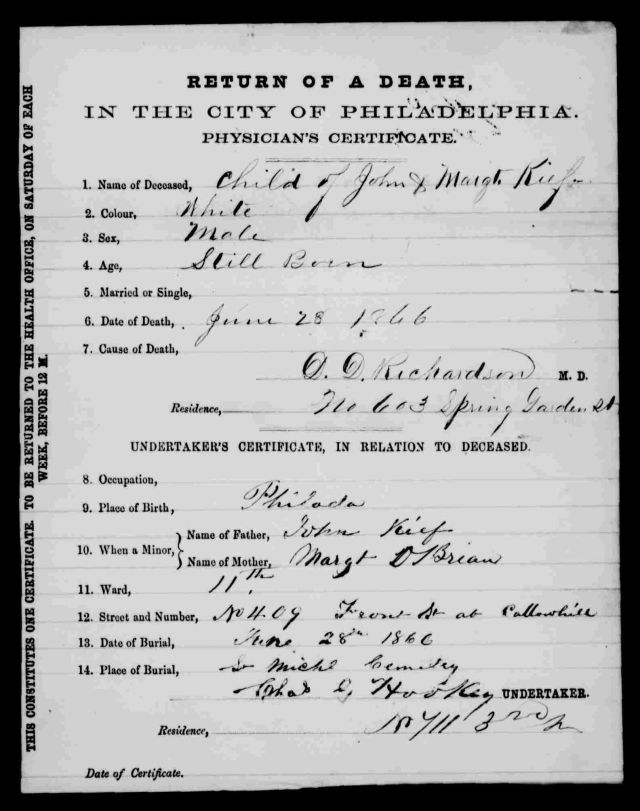 RETURN OF A DEATH,
IN THE CITY OF PHILADELPHIA.
PHYSICIAN'S CERTIFICATE.
1. Name of Deceased, Child of John & Margt Kief
2. Colour, White
3. Sex, Male
4. Age, Still Born
5. Married or Single,
6. Date of Death, June 28 1866
7. Cause of Death,
D. D. Richardson M. D.
Residence, No 603 Spring Garden St
UNDERTAKER'S CERTIFICATE, IN RELATION TO DECEASED.
8. Occupation,
9. Place of Birth, Philada
10. When a Minor, Name of Father, John Kief
Name of Mother, Margt O Brian
11. Ward, 11th
12. Street and Number, No 409 Front St at Callowhill
13. Date of Burial, June 28th 1866
14. Place of Burial, St Michl Cemetey
Chas Hookey UNDERTAKER.
Residence, 3rd
Date of Certificate.
THIS CONSTITUTES ONE CERTIFICATE. TO BE RETURNED TO THE HEALTH OFFICE, ON SATURDAY OF EACH
WEEK, BEFORE 12 M.